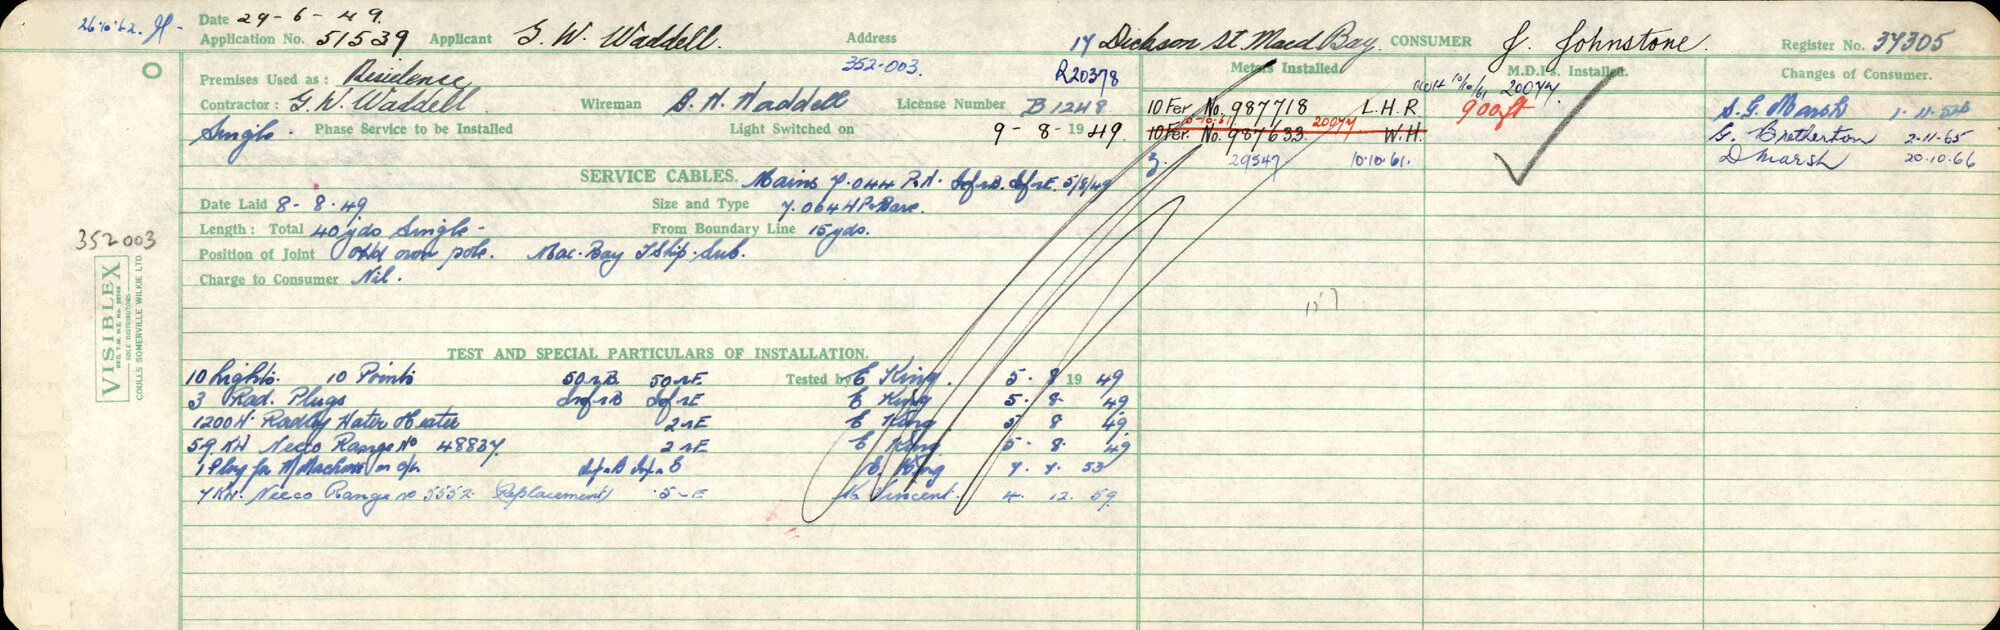 26.10.62. Date 29-6-49.
Application No. 51539 Applicant G. W. Waddell. Address 14 Dickson St Macd Bay. CONSUMER J. Johnstone. Register No. 37305
352.003. R20378 Meters Installed M.D.I's. Installed. Changes of Consumer.
Premises Used as: Residence
10/10/61 20077.
Contractor: G. W. Waddell Wireman B. N. Waddell License Number B1248 10 Fer No. 987718 L.H.R. 900ft S. G. Marsh
Single. Phase Service to be Installed Light Switched on 9-8-1949. 10 Fer. No. 987633 W.H. G. Bretherton 2-11-65
10-10-61 20077
3. 29547 10.10.61. D Marsh 20.10.66
SERVICE CABLES. Mains 7.044 P.N. Inf r B. Inf r E. 5/8/49
Date Laid 8-8-49 Size and Type 7.064 H.P. Bare.
Length: Total 40 yds Single - From Boundary Line 15 yds.
Position of Joint own pole. Mac. Bay T Ship. Sub.
Charge to Consumer Nil.
352003
VISIBLEX
COULLS SOMERVILLE WILKIE LTD.
SOLE DISTRIBUTORS
TEST AND SPECIAL PARTICULARS OF INSTALLATION.
10 Lights. 10 Points 50 r B. 50 r E. Tested by E King. 5. 8 1949
3 Rad. Plugs Inf r B Inf r E E King 5. 8. 49
1200 W. Radley Water Heater 2 r E E King 5 8 49.
59 KW Neeco Range No 48837. 2 r E E King. 5. 8. 49
1 Plug for Machine on Inf r B Inf r E E. King 7. 7. 53
7 KW. Neeco Range no 5552. Replacement .5 - E K. Vincent. 4. 12. 59.